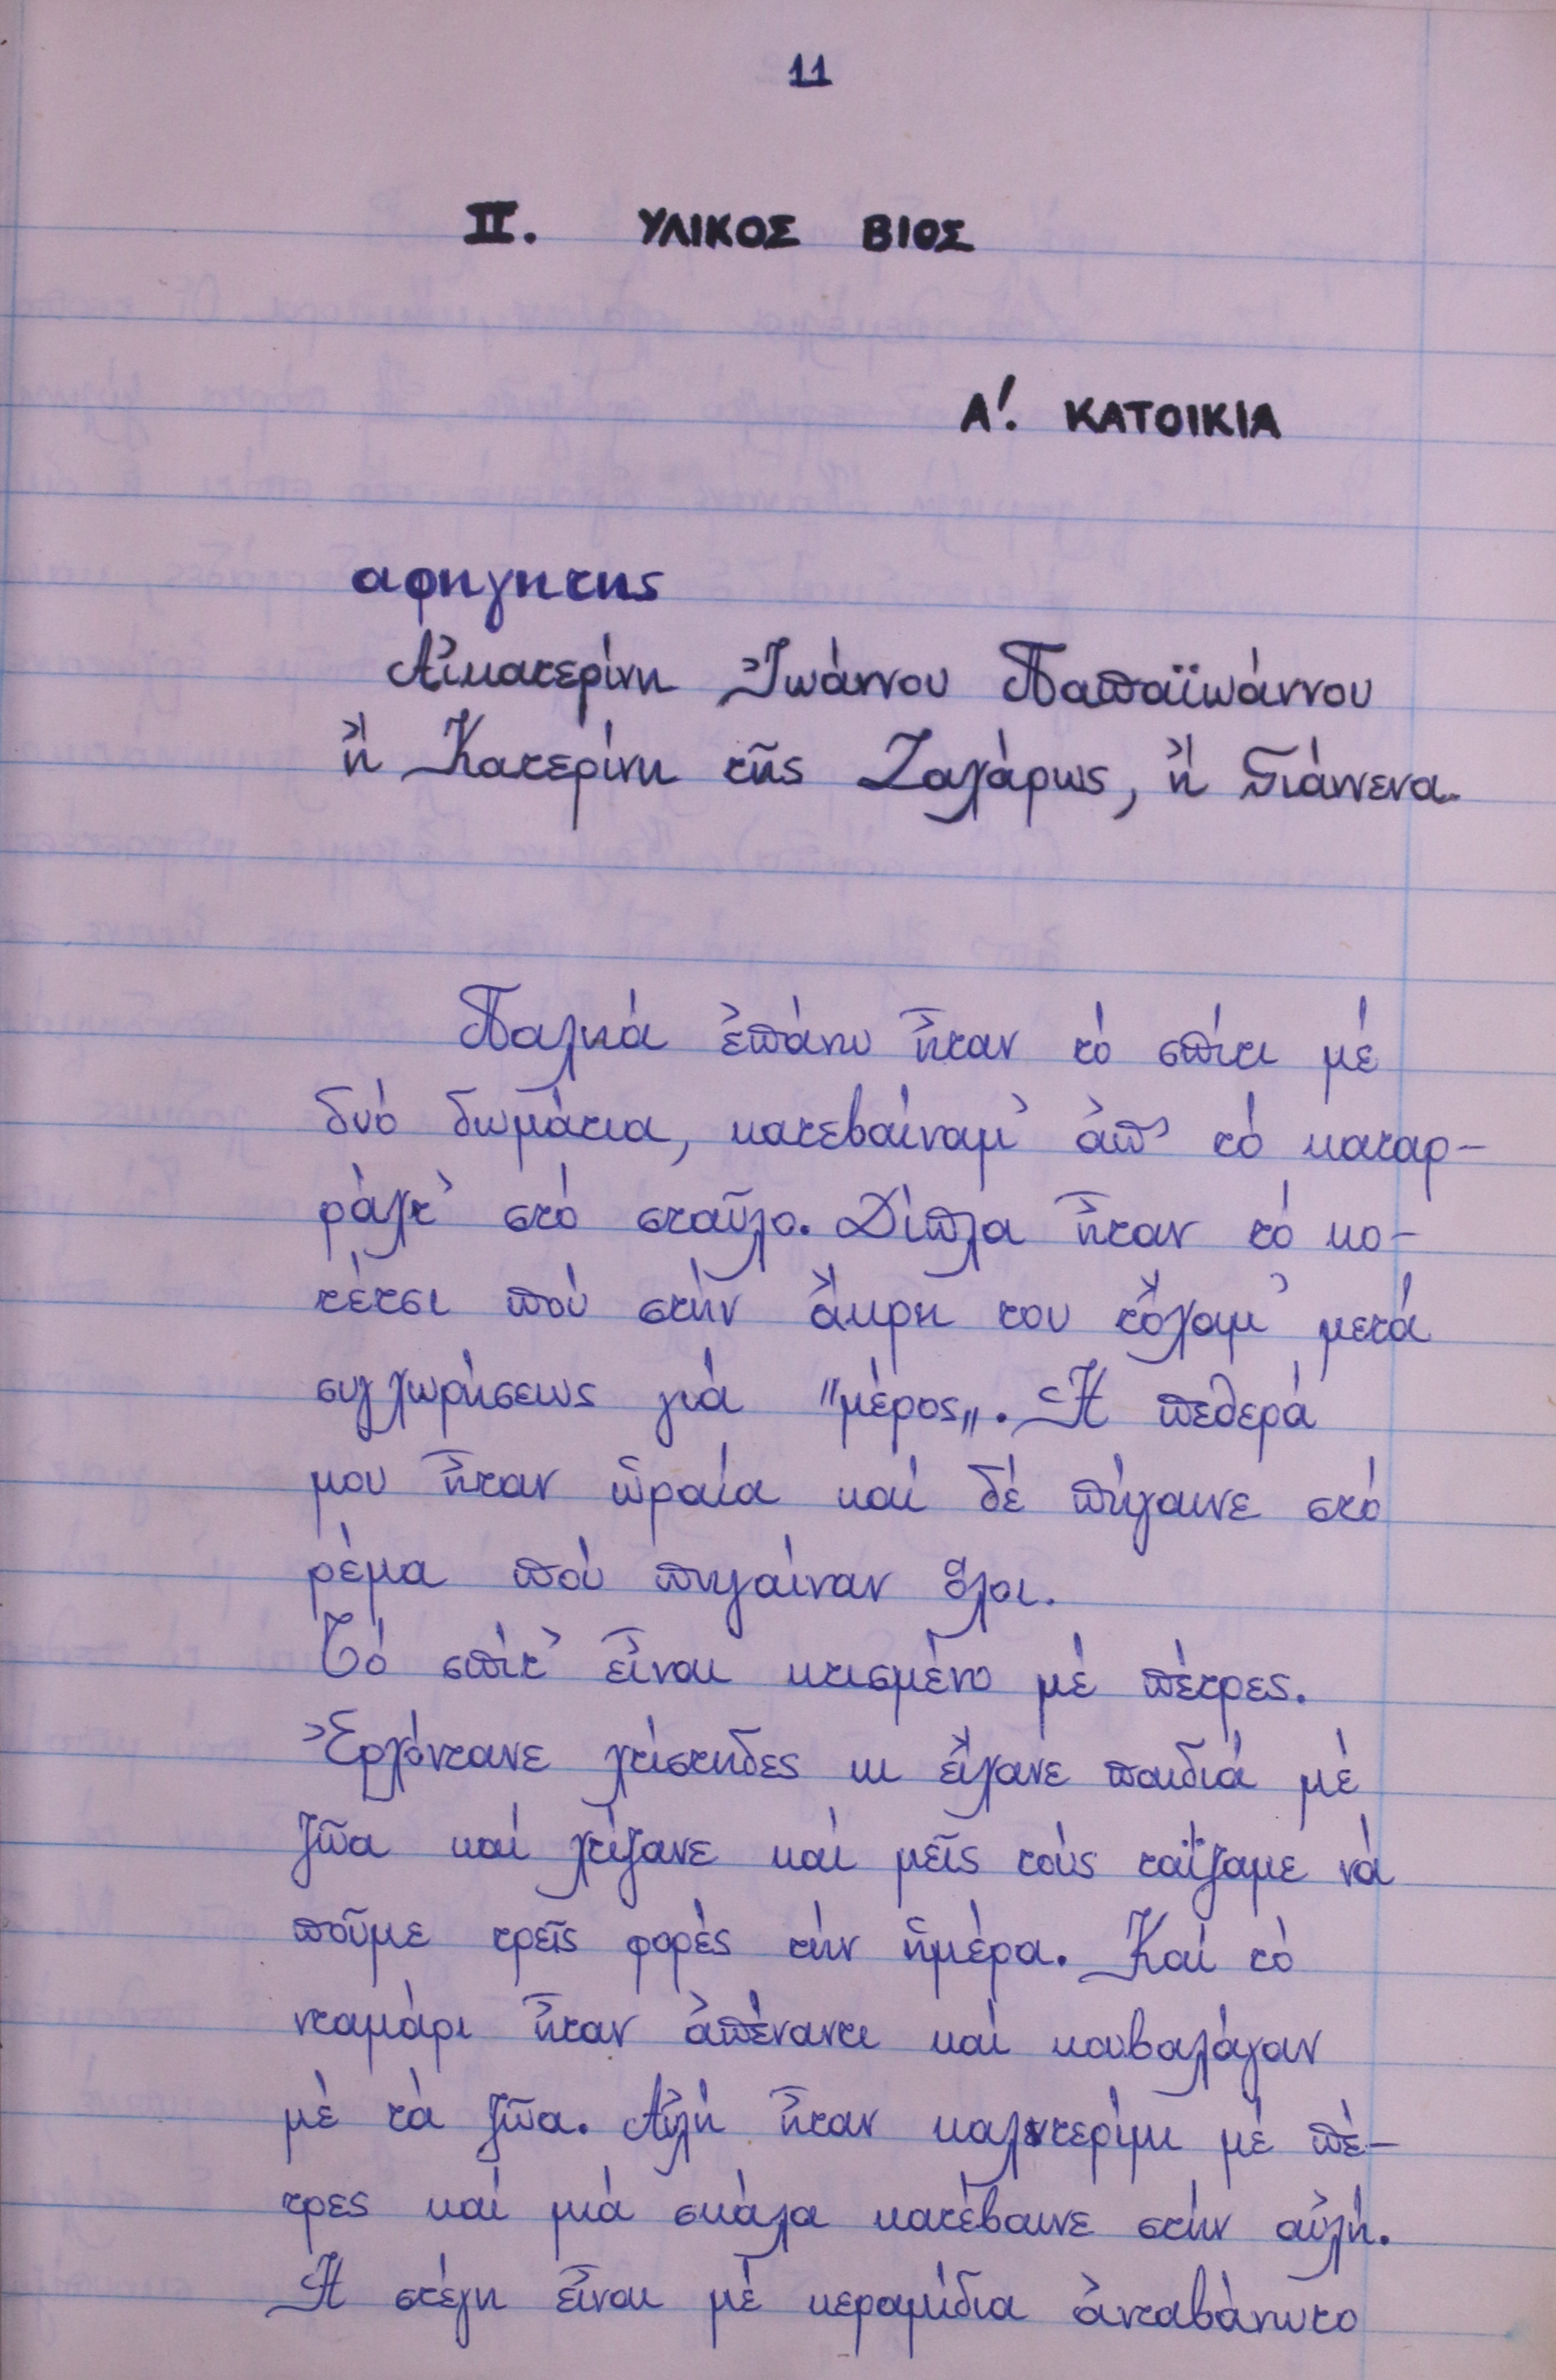 11
II. ΥΛΙΚΟΣ ΒΙΟΣ
Α'. ΚΑΤΟΙΚΙΑ
αφηγητης
Αἰκατερίνη Ἰωάννου Παπαϊωάννου
ἤ Κατερίνη τῆς Ζαχάρως, ἤ Γιάννενα.
Παληά ἐπάνω ἦταν τό σπίτι μέ
δυό δωμάτια, κατεβαίναμ' ἀπ' τό καταρ-
ράχτ' στό σταῦλο. Δίπλα ἦταν τό κο-
τέτσι πού στήν ἄκρη του τὄχαμ' μετά
συγχωρήσεως γιά "μέρος". Ἡ πεθερά
μου ἦταν ὡραία καί δέ πήγαινε στό
ρέμα πού πηγαίναν ὅλοι.
Τό σπίτ' εἶναι κτισμένο μέ πέτρες.
Ἐρχόντανε χτίστηδες κι εἴχανε παιδιά μέ
ζῶα καί χτίζανε καί μεῖς τούς ταΐζαμε νά
ποῦμε τρεῖς φορές τήν ἡμέρα. Καί τό
νταμάρι ἦταν ἀπέναντι καί κουβαλάγαν
μέ τά ζῶα. Αὐλή ἦταν καλντερίμι μέ πέ-
τρες καί μιά σκάλα κατέβαινε στήν αὐλή.
Ἡ στέγη εἶναι μέ κεραμίδια ἀνταβάνωτο